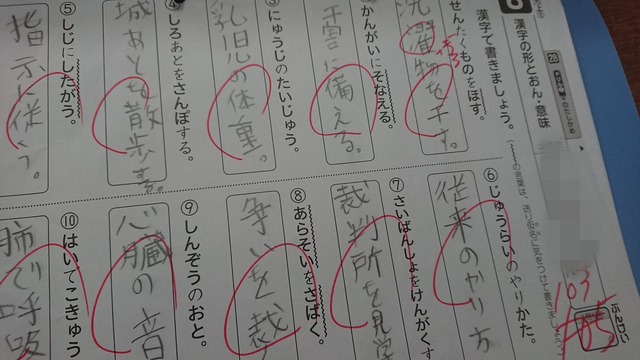 漢字の形とおん・意味
漢字で書きましょう。
せんたくものをほす。
洗濯物を干す。
かんがいにそなえる。
にゅうじのたいじゅう。
乳児の体重。
④ しろあとをさんぽする。
城あとを散歩する。
⑤ しじにしたがう。
指示に従う。
103
105
⑥ じゅうらいのやりかた。
従来のやり方
⑦ さいばんしょをけんがくす
裁判所を見学
⑧ あらそいをさばく。
争いを裁
⑨ しんぞうのおと。
心臓の音
⑩ はいでこきゅう
肺で呼吸